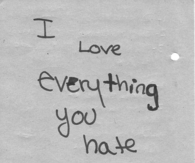 I
Love
everything
you
hate